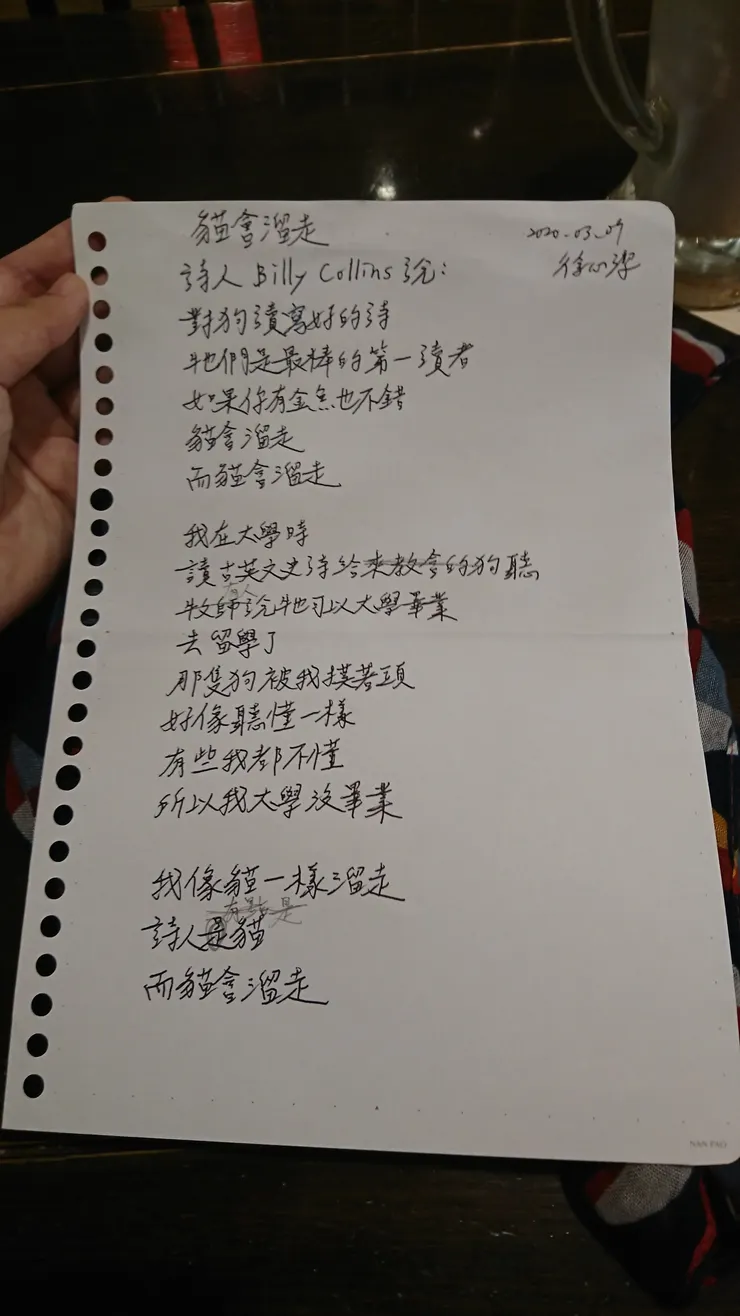 貓會溜走
2020.03.09
徐心潔
詩人 Billy Collins 說：
對狗讀寫好的詩
牠們是最棒的第一讀者
如果你有金魚也不錯
貓會溜走
而貓會溜走
我在大學時
讀古英文史詩給來教會的狗聽
牧師說牠可以大學畢業
去留學了
那隻狗被我摸著頭
好像聽懂一樣
有些我都不懂
所以我大學沒畢業
我像貓一樣溜走
有點是
詩人是貓
而貓會溜走
NAN PAO